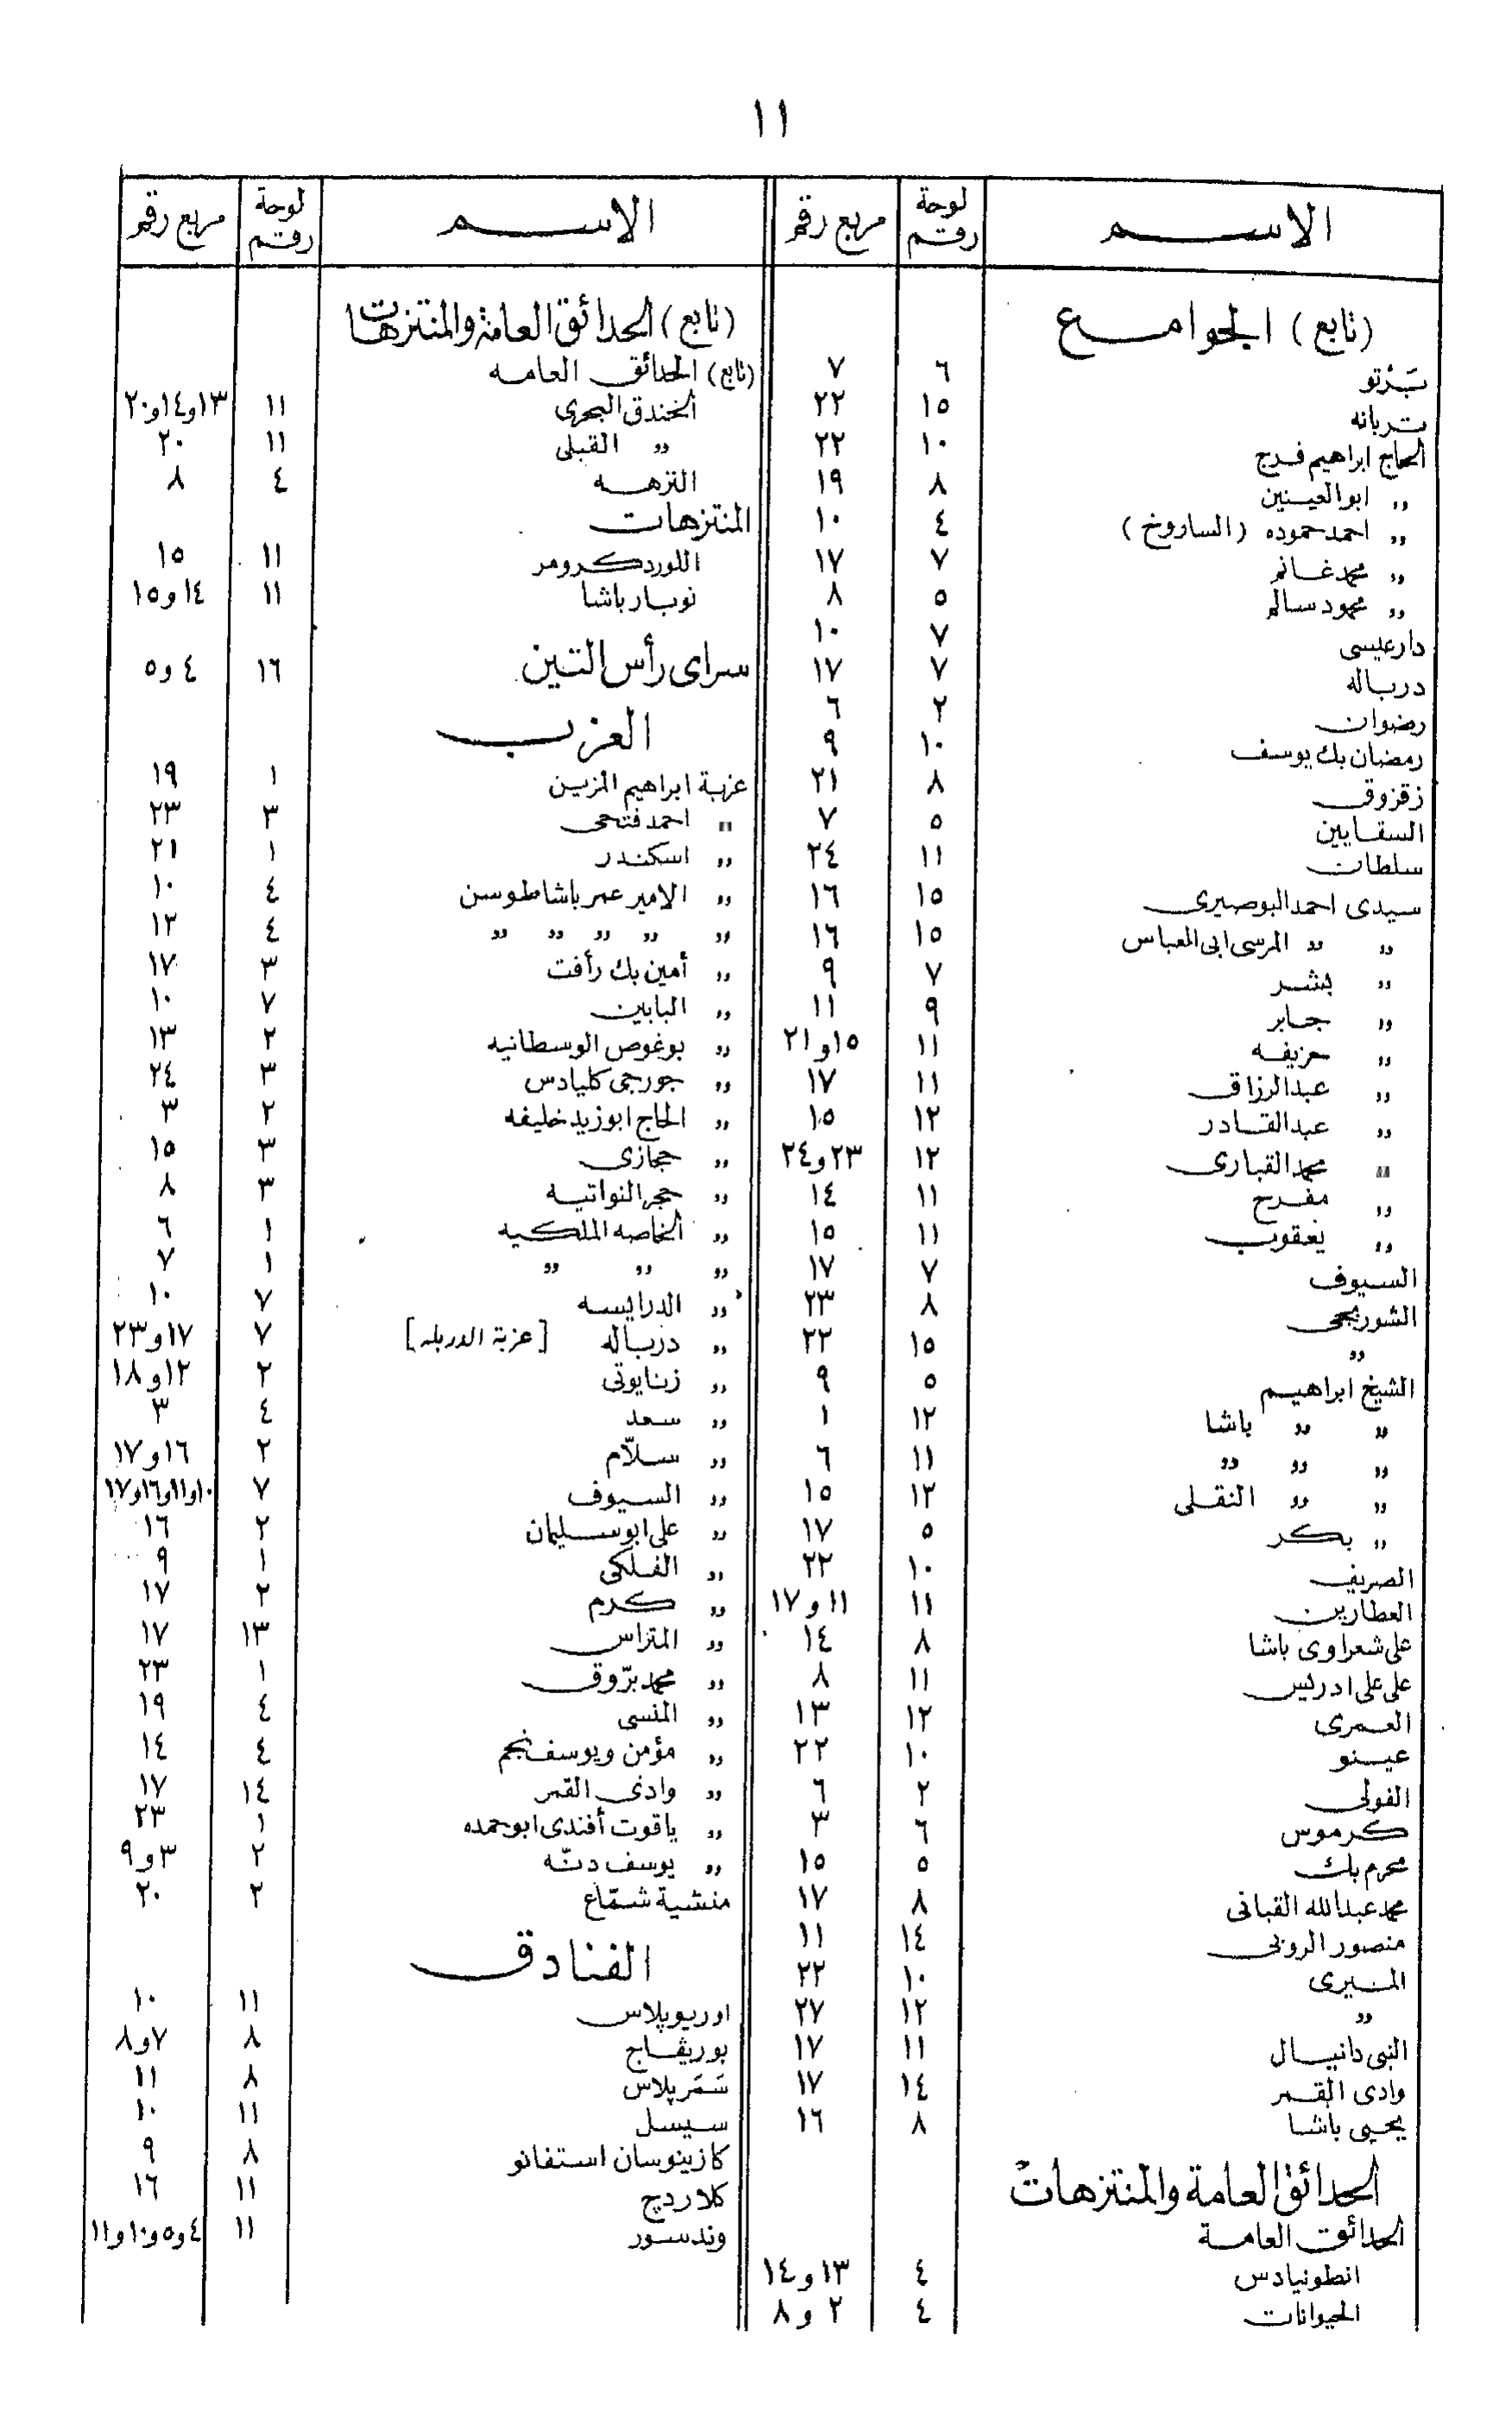 ١١
الاســـم	لوحة رقم	مربع رقم
(تابع) الجوامع
بَرْتو	٦	٧
تربانه	١٥	٢٢
الحاج ابراهيم فرج	١٠	٢٢
〃 ابوالعينين	٨	١٩
〃 احمد حموده (الساروخ)	٤	١٠
〃 محمد غانم	٧	١٧
〃 محمود سالم	٥	٨
دار عيسى	٧	١٠
درباله	٧	١٧
رضوان	٢	٦
رمضان بك يوسف	١٠	٩
زقزوق	٨	٢١
السقايين	٥	٧
سلطات	١١	٢٤
سيدى احمد البوصيرى	١٥	١٦
〃 〃 المرسى ابى العباس	١٥	١٦
〃 بشر	٧	٩
〃 جابر	٩	١١
〃 حزيفه	١١	١٥و٢١
〃 عبدالرزاق	١١	١٧
〃 عبدالقادر	١٢	١٥
〃 محمد القبارى	١٢	٢٣و٢٤
〃 مفرح	١١	١٤
〃 يعقوب	١١	١٥
السيوف	٧	١٧
الشوربجى	٨	٢٣
〃	١٥	٢٢
الشيخ ابراهيم	٥	٩
〃 〃 باشا	١٢	١
〃 〃 〃	١١	٦
〃 〃 النقلى	١٢	١٥
〃 بكر	٥	١٧
الصريف	١٠	٢٢
العطارين	١١	١١ و١٧
على شعراوى باشا	٨	١٤
على على ادريس	١١	٨
العمرى	١٢	١٣
عينو	١٠	٢٢
الفولى	٢	٦
كرموس	٦	٣
محرم بك	٥	١٥
محمد عبدالله القبانى	٨	١٧
منصور الروبى	١٤	١١
المنيرى	١٠	٢٢
〃	١٢	٢٧
النبى دانيال	١١	١٧
وادى القمر	١٤	١٧
يحيى باشا	٨	١٦
الحدائق العامة والمنتزهات
الحدائق العامة
انطونيادس	٤	١٣ و١٤
الحيوانات	٤	٢ و ٨
الاســـم	لوحة رقم	مربع رقم
(تابع) الحدائق العامة والمنتزهات
(تابع) الحدائق العامه
الخندق البحرى	١١	١٣و١٤و٢٠
〃 القبلى	١١	٢٠
النزهه	٤	٨
المنتزهات
اللورد كرومر	١١	١٥
نوبار باشا	١١	١٤ و١٥
سراى رأس التين	١٦	٤ و٥
العزب
عزبة ابراهيم المزين	١	١٩
〃 احمد فتحى	٣	٢٣
〃 اسكندر	١	٢١
〃 الامير عمر باشا طوسن	٤	١٠
〃 〃 〃 〃 〃	٤	١٢
〃 أمين بك رأفت	٣	١٧
〃 البابين	٧	١٠
〃 بوغوص الوسطانيه	٢	١٣
〃 جورجى كليادس	٣	٢٤
〃 الحاج ابوزيد خليفه	٢	٣
〃 حجازى	٣	١٥
〃 حجر النواتيه	٣	٨
〃 الخاصه الملكيه	١	٦
〃 〃 〃	١	٧
〃 الدرايسه	٧	١٠
〃 درباله [عزبة الدربله]	٧	١٧و٢٣
〃 زنايوتى	٢	١٢و١٨
〃 سعد	٤	٣
〃 سلاّم	٢	١٦و١٧
〃 السيوف	٧	١٠و١١و١٦و١٧
〃 على ابوسليمان	٢	١٦
〃 الفلكى	١	٩
〃 كرم	٢	١٧
〃 المتراس	١٣	١٧
〃 محمد برّوق	١	٢٣
〃 المنسى	٤	١٩
〃 مؤمن ويوسف نجم	٤	١٤
〃 وادى القمر	١٤	١٧
〃 ياقوت أفندى ابوحمده	١	٢٣
〃 يوسف دنّه	٢	٣ و٩
منشية شمّاع	٢	٢٠
الفنادق
اوريوپلاس	١١	١٠
بوريڤاج	٨	٧و٨
سَمَرپلاس	٨	١١
سيسل	١١	١٠
كازينوسان استفانو	٨	٩
كلاردچ	١١	١٦
وندسور	١١	٤و٥و١٠و١١